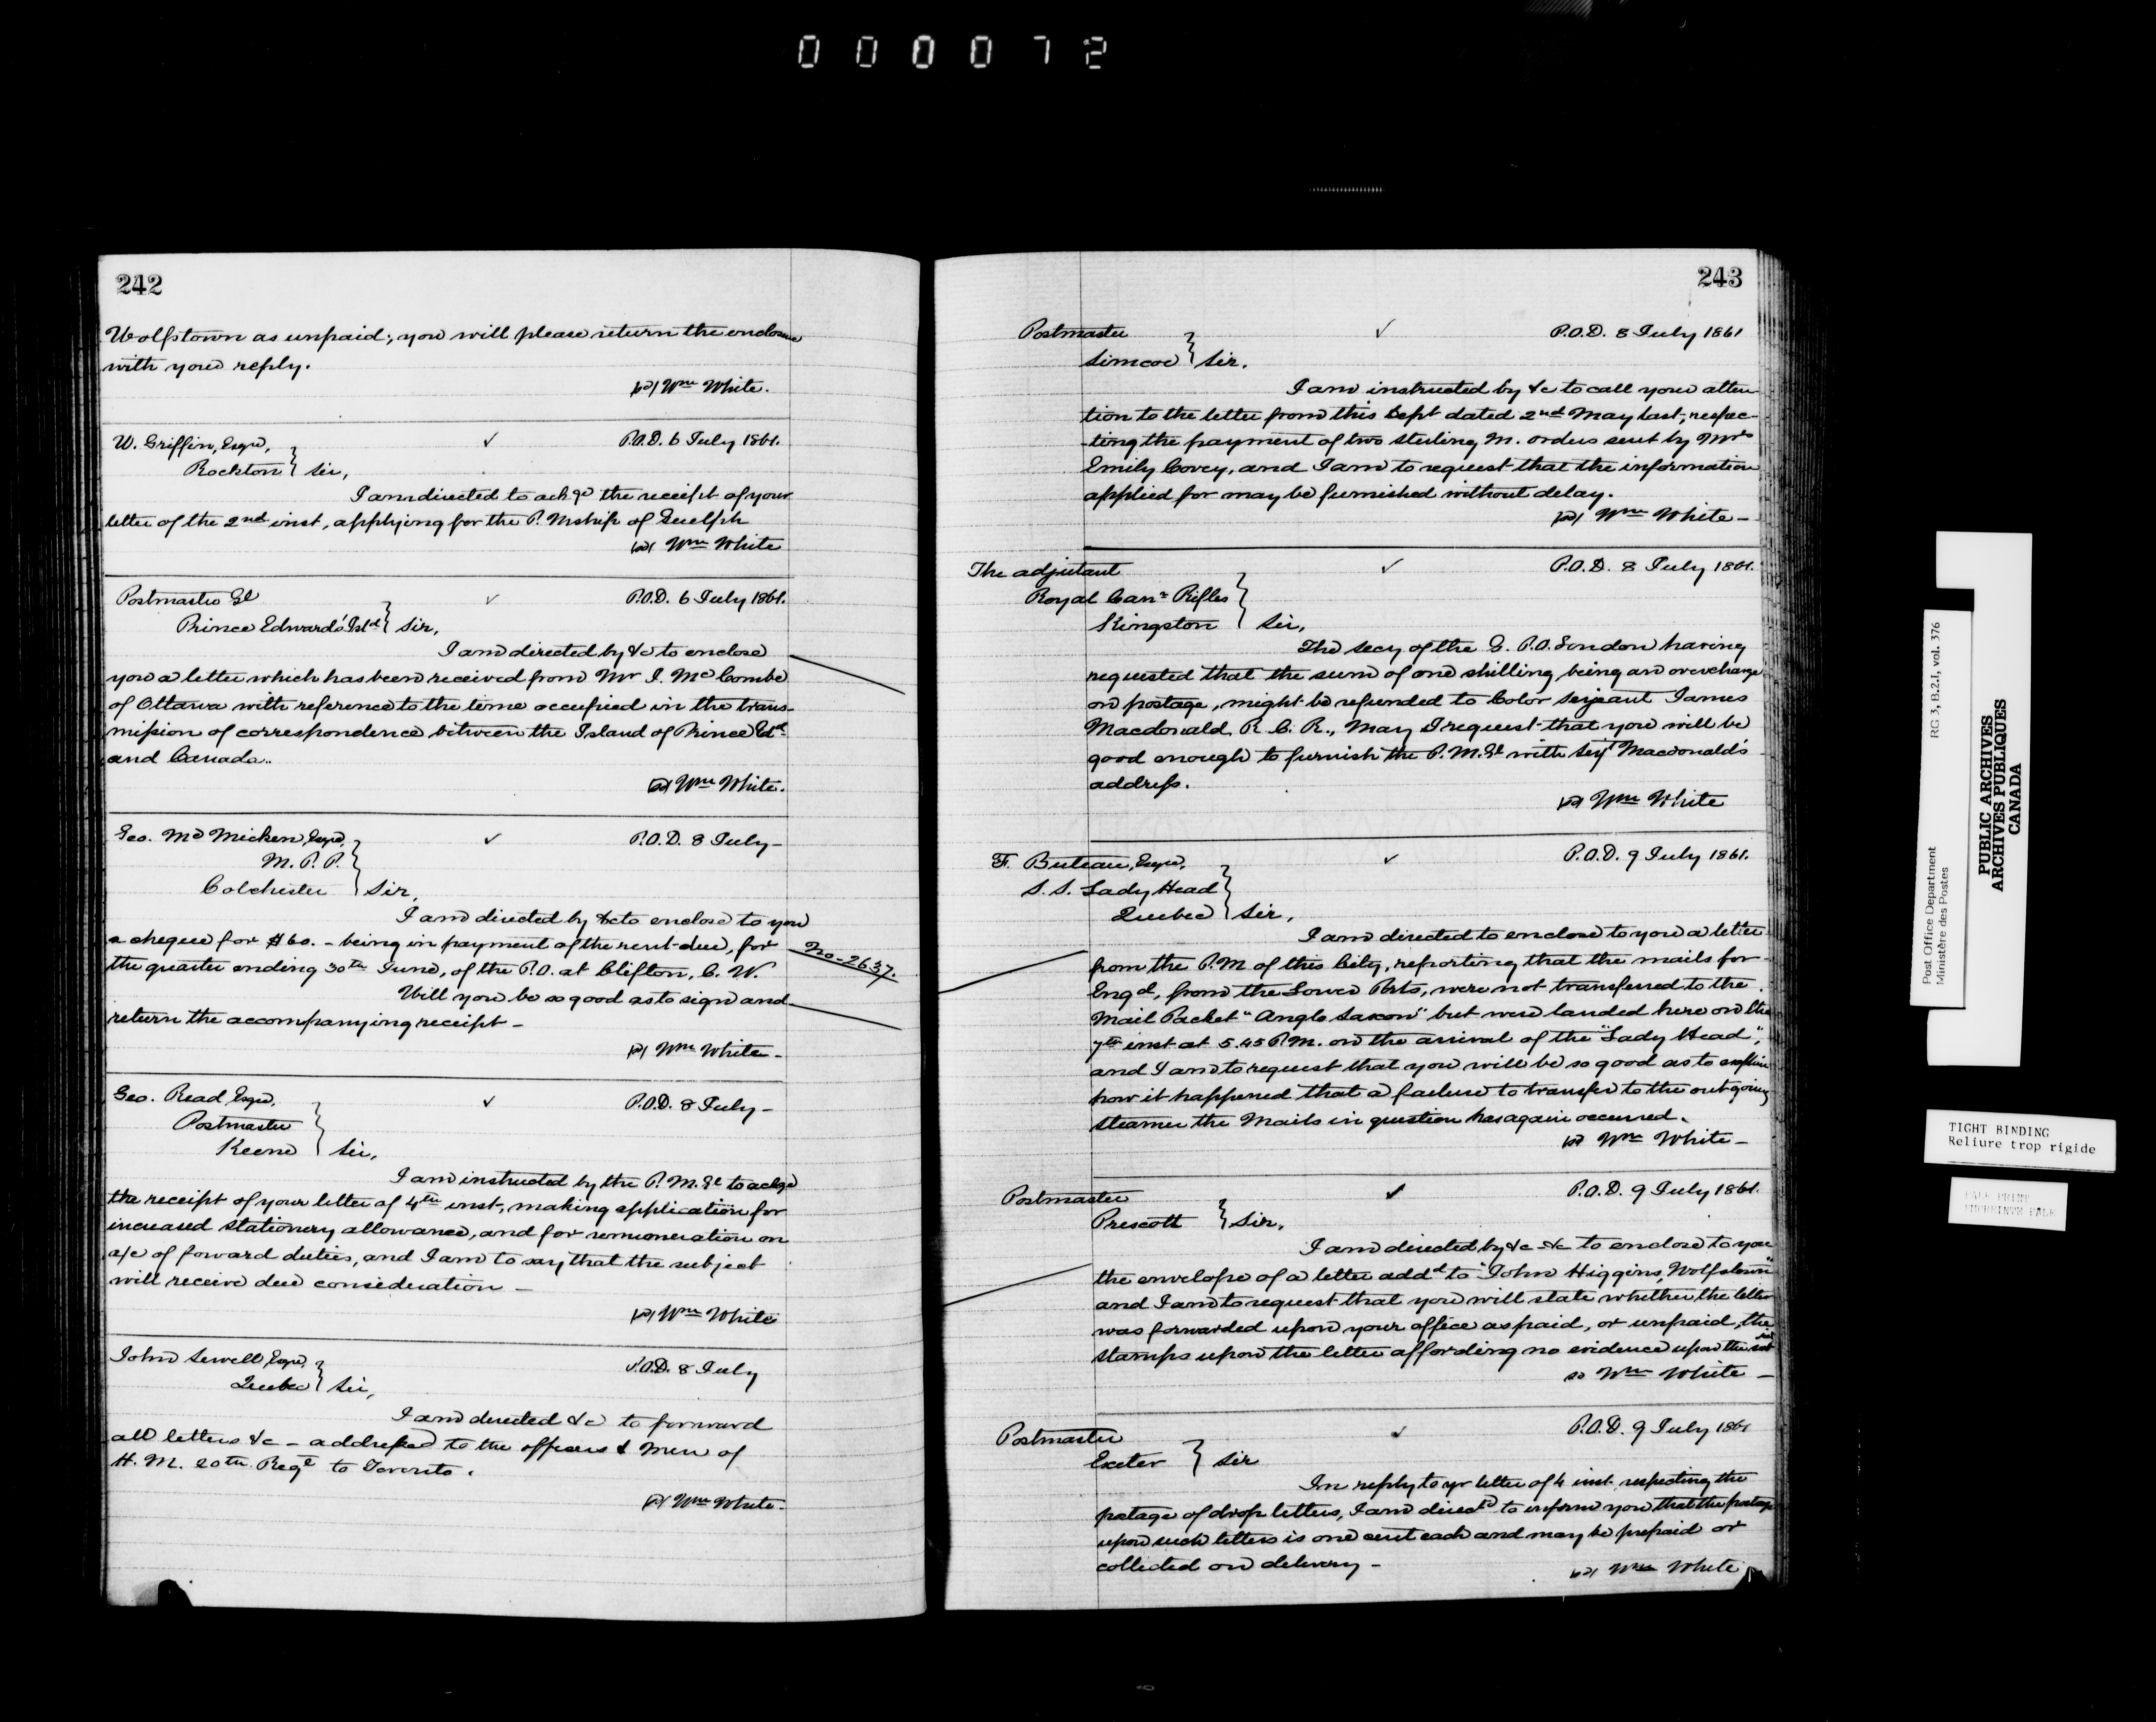 000072
242
Wolfstown as unpaid; you will please return the enclosure
with your reply.
Wm White.
W. Griffin, Esqre, ✓ P.O.D. 6 July 1861.
Rockton } Sir,
I am directed to ackge the receipt of your
letter of the 2nd inst, applying for the P. Mship of Guelph
Wm White
Postmaster Gl ✓ P.O.D. 6 July 1861.
Prince Edward's Isld } Sir,
I am directed by &c to enclose
you a letter which has been received from Mr J. McCombe
of Ottawa with reference to the time occupied in the trans-
mission of correspondence between the Island of Prince Edd
and Canada..
Wm White.
Geo. McMicken, Esqre, ✓ P.O.D. 8 July -
M. P. P.
Colchester } Sir,
I am directed by &c to enclose to you
a cheque for $60. - being in payment of the rent due, for
No - 2637.
the quarter ending 30th June, of the P.O. at Clifton, C. W.
Will you be so good as to sign and
return the accompanying receipt -
Wm White -
Geo. Read Esqre, ✓ P.O.D. 8 July -
Postmaster
Keene } Sir,
I am instructed by the P. M. Gl to ackge
the receipt of your letter of 4th inst, making application for
increased stationery allowance, and for remuneration on
a/c of forward duties, and I am to say that the subject
will receive due consideration -
Wm White
John Sewell Esqre, P.O.D. 8 July
Quebec } Sir,
I am directed &c to forward
all letters &c - addressed to the officers & men of
H. M. 20th Regt to Toronto.
Wm White -
243
Postmaster ✓ P.O.D. 8 July 1861
Simcoe } Sir,
I am instructed by &c to call your atten-
tion to the letter from this Dept dated 2nd May last, respec-
ting the payment of two sterling M. orders sent by Mrs
Emily Covey, and I am to request that the information
applied for may be furnished without delay.
Wm White -
The adjutant ✓ P.O.D. 8 July 1861.
Royal Cann Rifles
Kingston } Sir,
The Secy of the G. P.O. London having
requested that the sum of one shilling being an overcharge
on postage, might be refunded to Color Serjeant James
Macdonald, R. C. R., may I request that you will be
good enough to furnish the P.M.Gl with Serjt Macdonald's
address.
Wm White
F. Buteau, Esqre, ✓ P.O.D. 9 July 1861.
S. S. Lady Head
Quebec } Sir,
I am directed to enclose to you a letter
from the P.M of this City, reporting that the mails for
Engd, from the Lower Ports, were not transferred to the
Mail Packet "Anglo Saxon" but were landed here on the
7th inst at 5.45 P.M. on the arrival of the "Lady Head",
and I am to request that you will be so good as to explain
how it happened that a failure to transfer to the outgoing
steamer the Mails in question has again occurred.
Wm White -
Postmaster ✓ P.O.D. 9 July 1861.
Prescott } Sir,
I am directed by &c &c to enclose to you
the envelope of a letter addd to "John Higgins, Wolfstown"
and I am to request that you will state whether the letter
was forwarded upon your office as paid, or unpaid, the
stamps upon the letter affording no evidence upon the
Wm White -
Postmaster ✓ P.O.D. 9 July 1861
Exeter } Sir
In reply to yr letter of 4 inst respecting the
postage of drop letters, I am directd to inform you that the postage
upon such letters is one cent each and may be prepaid or
collected on delivery -
Wm White
RG 3, B.2.I, vol. 376
Post Office Department
Ministère des Postes
PUBLIC ARCHIVES
ARCHIVES PUBLIQUES
CANADA
TIGHT BINDING
Reliure trop rigide
PALE PRINT
IMPRIMÉ PALE